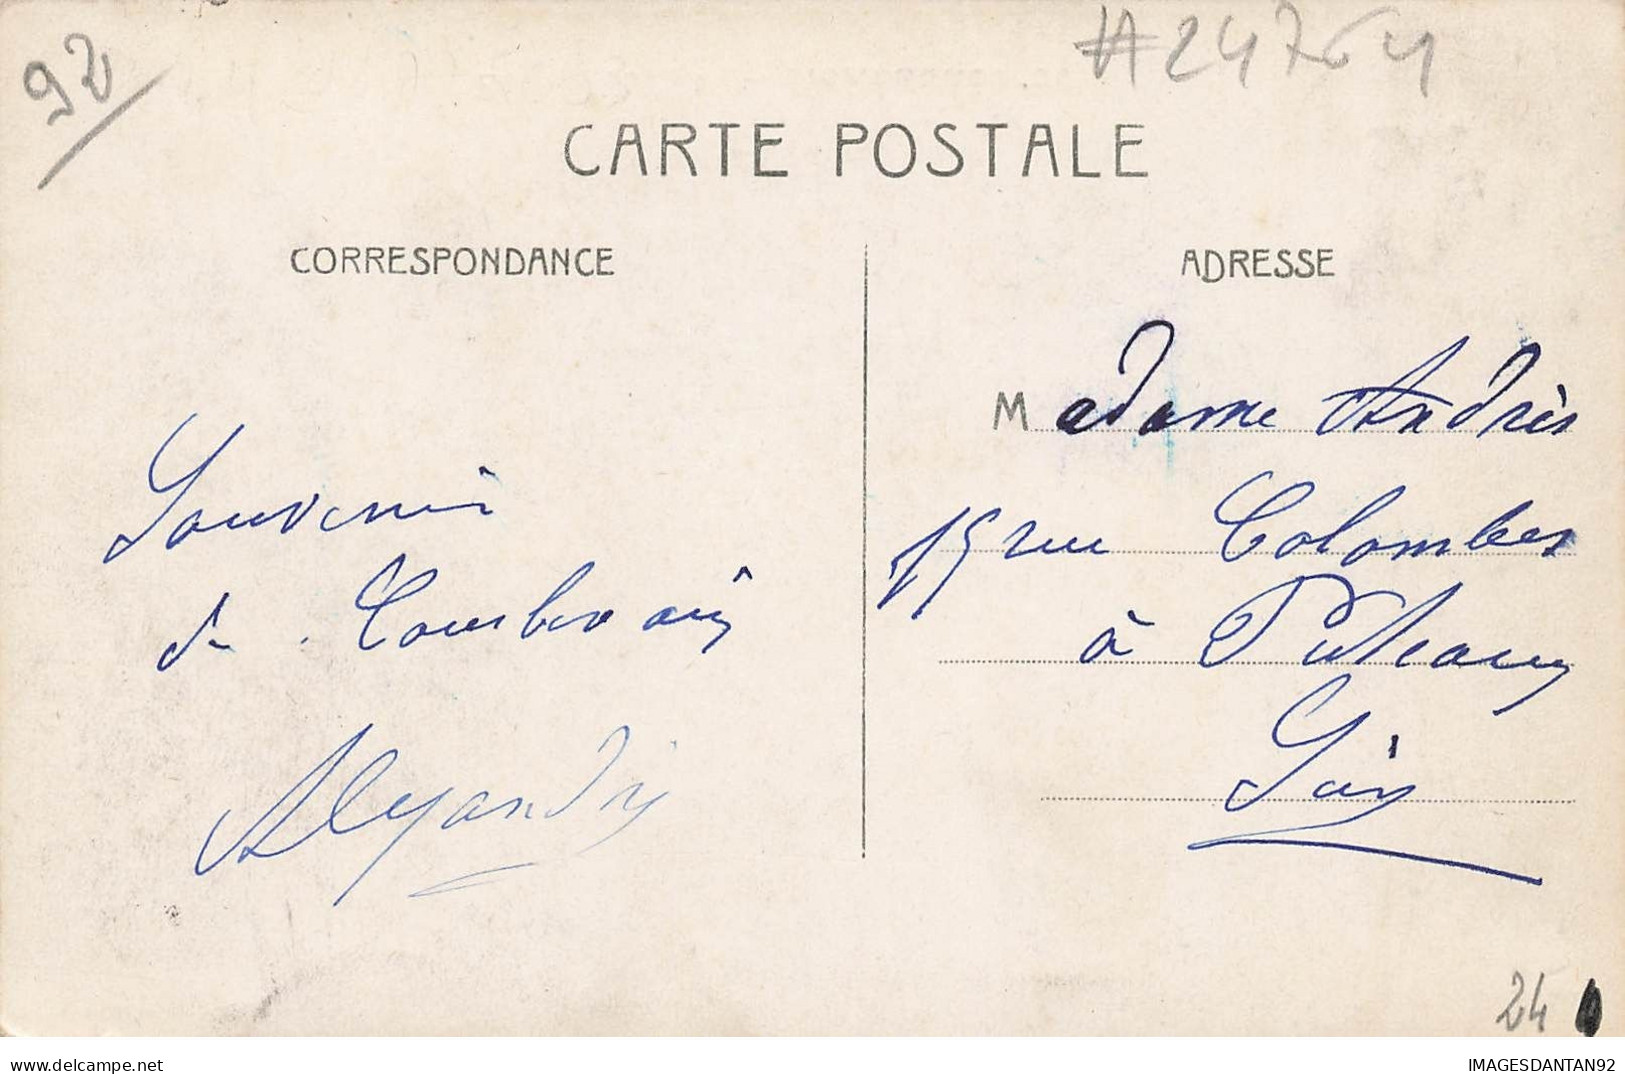 92
#24764
CARTE POSTALE
CORRESPONDANCE
ADRESSE
Souvenir
de Courbevoie
Madame Andrès
15 rue Colombes
à Puteaux
24
www.delcampe.net
IMAGESDANTAN92